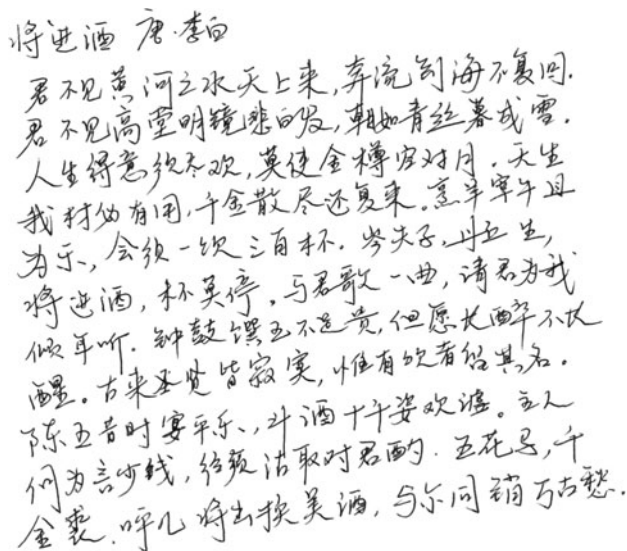 将进酒 唐·李白
君不见黄河之水天上来,奔流到海不复回.
君不见高堂明镜悲白发,朝如青丝暮成雪.
人生得意须尽欢,莫使金樽空对月.天生
我材必有用,千金散尽还复来.烹羊宰牛且
为乐,会须一饮三百杯.岑夫子,丹丘生,
将进酒,杯莫停.与君歌一曲,请君为我
倾耳听.钟鼓馔玉不足贵,但愿长醉不长
醒。古来圣贤皆寂寞,惟有饮者留其名。
陈王昔时宴平乐,斗酒十千恣欢谑。主人
何为言少钱,径须沽取对君酌.五花马,千
金裘.呼儿将出换美酒,与尔同销万古愁.